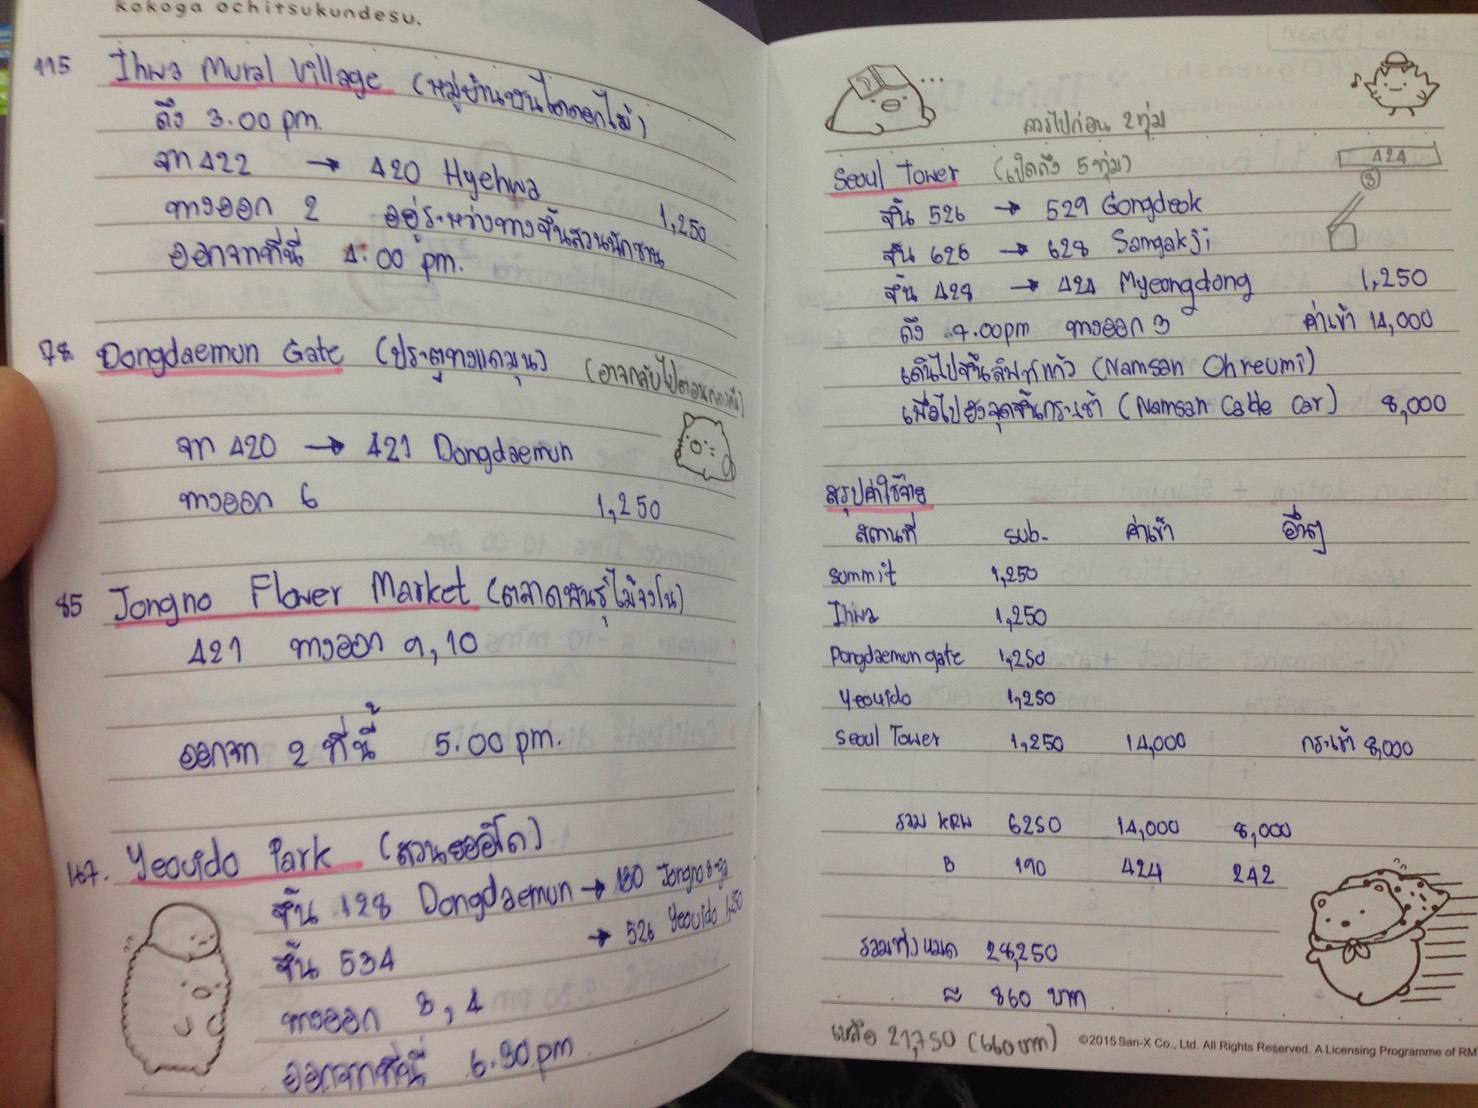 kokoga ochitsukundesu.
115 Ihwa Mural Village (หมู่บ้านบันไดดอกไม้)
ถึง 3.00 pm.
จาก 422 → 420 Hyehwa
ทางออก 2 อยู่ระหว่างทางขึ้นสวนนักซาน 1,250
ออกจากที่นี่ 4:00 pm.
78 Dongdaemun Gate (ประตูทงแดมุน) (อาจกลับไปตอนกลางคืน)
จาก 420 → 421 Dongdaemun
ทางออก 6 1,250
85 Jongno Flower Market (ตลาดพันธุ์ไม้จงโน)
421 ทางออก 9, 10
ออกจาก 2 ที่นี้ 5.00 pm.
167. Yeouido Park (สวนยออีโด)
ขึ้น 128 Dongdaemun → 130 Jongno 3-ga
ขึ้น 534 → 526 Yeouido 1,250
ทางออก 3, 4
ออกจากที่นี่ 6.30 pm
ควรไปก่อน 2 ทุ่ม
Seoul Tower (เปิดถึง 5 ทุ่ม) 424
3
ขึ้น 526 → 529 Gongdeok
ขึ้น 626 → 628 Samgakji
ขึ้น 428 → 424 Myeongdong 1,250
ถึง 7.00pm ทางออก 3 ค่าเข้า 14,000
เดินไปขึ้นลิฟท์แก้ว (Namsan Ohreumi)
เพื่อไปยังจุดขึ้นกระเช้า (Namsan Cable Car) 8,000
สรุปค่าใช้จ่าย
สถานที่ sub. ค่าเข้า อื่นๆ
summit 1,250
Ihwa 1,250
Dongdaemun gate 1,250
Yeouido 1,250
Seoul Tower 1,250 14,000 กระเช้า 8,000
รวม KRW 6250 14,000 8,000
B 190 424 242
รวมทั้งหมด 28,250
≈ 860 บาท
เหลือ 21,750 (660 บาท)
©2015 San-X Co., Ltd. All Rights Reserved. A Licensing Programme of RM